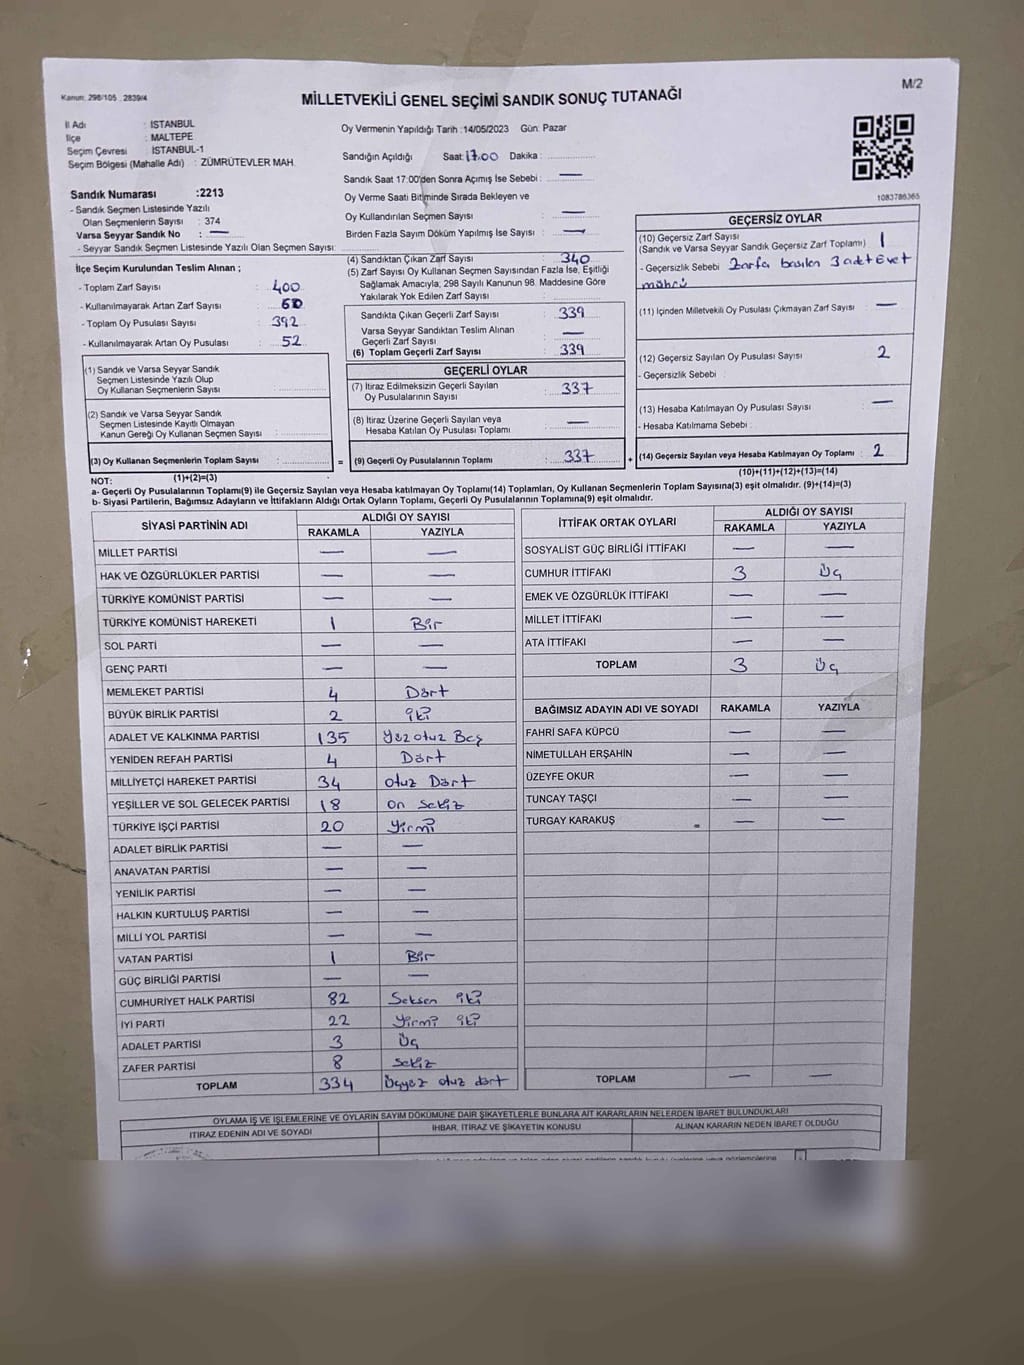 Kanun: 298/105 , 2839/4
M/2
MİLLETVEKİLİ GENEL SEÇİMİ SANDIK SONUÇ TUTANAĞI
İl Adı : İSTANBUL
İlçe : MALTEPE
Seçim Çevresi : İSTANBUL-1
Seçim Bölgesi (Mahalle Adı) : ZÜMRÜTEVLER MAH.
Sandık Numarası :2213
- Sandık Seçmen Listesinde Yazılı
Olan Seçmenlerin Sayısı : 374
Varsa Seyyar Sandık No : —
- Seyyar Sandık Seçmen Listesinde Yazılı Olan Seçmen Sayısı:
İlçe Seçim Kurulundan Teslim Alınan ;
- Toplam Zarf Sayısı : 400
- Kullanılmayarak Artan Zarf Sayısı : 60
- Toplam Oy Pusulası Sayısı : 392
- Kullanılmayarak Artan Oy Pusulası : 52
(1) Sandık ve Varsa Seyyar Sandık
Seçmen Listesinde Yazılı Olup
Oy Kullanan Seçmenlerin Sayısı :
(2) Sandık ve Varsa Seyyar Sandık
Seçmen Listesinde Kayıtlı Olmayan
Kanun Gereği Oy Kullanan Seçmen Sayısı :
(3) Oy Kullanan Seçmenlerin Toplam Sayısı :
(1)+(2)=(3)
Oy Vermenin Yapıldığı Tarih :14/05/2023 Gün: Pazar
Sandığın Açıldığı Saat: 17.00 Dakika :
Sandık Saat 17:00'den Sonra Açmış İse Sebebi : —
Oy Verme Saati Bitiminde Sırada Bekleyen ve
Oy Kullandırılan Seçmen Sayısı : —
Birden Fazla Sayım Döküm Yapılmış İse Sayısı : —
(4) Sandıktan Çıkan Zarf Sayısı : 340
(5) Zarf Sayısı Oy Kullanan Seçmen Sayısından Fazla İse, Eşitliği
Sağlamak Amacıyla, 298 Sayılı Kanunun 98. Maddesine Göre
Yakılarak Yok Edilen Zarf Sayısı :
Sandıkta Çıkan Geçerli Zarf Sayısı : 339
Varsa Seyyar Sandıktan Teslim Alınan
Geçerli Zarf Sayısı : —
(6) Toplam Geçerli Zarf Sayısı : 339
GEÇERLİ OYLAR
(7) İtiraz Edilmeksizin Geçerli Sayılan
Oy Pusulalarının Sayısı : 337
(8) İtiraz Üzerine Geçerli Sayılan veya
Hesaba Katılan Oy Pusulası Toplamı : —
= (9) Geçerli Oy Pusulalarının Toplamı : 337
1083786365
GEÇERSİZ OYLAR
(10) Geçersiz Zarf Sayısı
(Sandık ve Varsa Seyyar Sandık Geçersiz Zarf Toplamı) : 1
- Geçersizlik Sebebi : Zarfa basılan 3 adet Evet
mührü
(11) İçinden Milletvekili Oy Pusulası Çıkmayan Zarf Sayısı : —
(12) Geçersiz Sayılan Oy Pusulası Sayısı : 2
- Geçersizlik Sebebi :
(13) Hesaba Katılmayan Oy Pusulası Sayısı : —
- Hesaba Katılmama Sebebi :
+ (14) Geçersiz Sayılan veya Hesaba Katılmayan Oy Toplamı : 2
(10)+(11)+(12)+(13)=(14)
NOT:
a- Geçerli Oy Pusulalarının Toplamı(9) ile Geçersiz Sayılan veya Hesaba katılmayan Oy Toplamı(14) Toplamları, Oy Kullanan Seçmenlerin Toplam Sayısına(3) eşit olmalıdır. (9)+(14)=(3)
b- Siyasi Partilerin, Bağımsız Adayların ve İttifakların Aldığı Ortak Oyların Toplamı, Geçerli Oy Pusulalarının Toplamına(9) eşit olmalıdır.
SİYASİ PARTİNİN ADI ALDIĞI OY SAYISI
RAKAMLA YAZIYLA
MİLLET PARTİSİ — —
HAK VE ÖZGÜRLÜKLER PARTİSİ — —
TÜRKİYE KOMÜNİST PARTİSİ — —
TÜRKİYE KOMÜNİST HAREKETİ 1 Bir
SOL PARTİ — —
GENÇ PARTİ — —
MEMLEKET PARTİSİ 4 Dört
BÜYÜK BİRLİK PARTİSİ 2 iki
ADALET VE KALKINMA PARTİSİ 135 Yüz otuz Beş
YENİDEN REFAH PARTİSİ 4 Dört
MİLLİYETÇİ HAREKET PARTİSİ 34 otuz Dört
YEŞİLLER VE SOL GELECEK PARTİSİ 18 on sekiz
TÜRKİYE İŞÇİ PARTİSİ 20 Yirmi
ADALET BİRLİK PARTİSİ — —
ANAVATAN PARTİSİ — —
YENİLİK PARTİSİ — —
HALKIN KURTULUŞ PARTİSİ — —
MİLLİ YOL PARTİSİ — —
VATAN PARTİSİ 1 Bir
GÜÇ BİRLİĞİ PARTİSİ — —
CUMHURİYET HALK PARTİSİ 82 Seksen iki
İYİ PARTİ 22 Yirmi iki
ADALET PARTİSİ 3 Üç
ZAFER PARTİSİ 8 sekiz
TOPLAM 334 Üçyüz otuz dört
İTTİFAK ORTAK OYLARI ALDIĞI OY SAYISI
RAKAMLA YAZIYLA
SOSYALİST GÜÇ BİRLİĞİ İTTİFAKI — —
CUMHUR İTTİFAKI 3 Üç
EMEK VE ÖZGÜRLÜK İTTİFAKI — —
MİLLET İTTİFAKI — —
ATA İTTİFAKI — —
TOPLAM 3 Üç
BAĞIMSIZ ADAYIN ADI VE SOYADI RAKAMLA YAZIYLA
FAHRİ SAFA KÜPCÜ — —
NİMETULLAH ERŞAHİN — —
ÜZEYFE OKUR — —
TUNCAY TAŞÇI — —
TURGAY KARAKUŞ — —
TOPLAM — —
OYLAMA İŞ VE İŞLEMLERİNE VE OYLARIN SAYIM DÖKÜMÜNE DAİR ŞİKAYETLERLE BUNLARA AİT KARARLARIN NELERDEN İBARET BULUNDUKLARI
İTİRAZ EDENİN ADI VE SOYADI İHBAR, İTİRAZ VE ŞİKAYETİN KONUSU ALINAN KARARIN NEDEN İBARET OLDUĞU